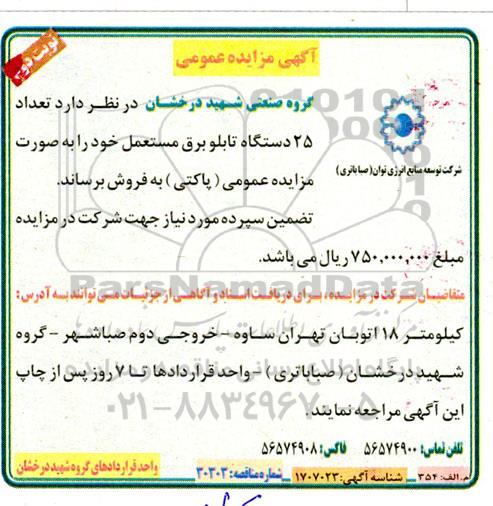 نوبت دوم
آگهی مزایده عمومی
گروه صنعتی شهید درخشان در نظر دارد تعداد
۲۵ دستگاه تابلو برق مستعمل خود را به صورت
مزایده عمومی ( پاکتی ) به فروش برساند.
شرکت توسعه منابع انرژی توان (صبا باتری)
تضمین سپرده مورد نیاز جهت شرکت در مزایده
مبلغ ۷۵۰,۰۰۰,۰۰۰ ریال می باشد.
متقاضیان شرکت در مزایده، برای دریافت اسناد و آگاهی از جزئیات می توانند به آدرس:
کیلومتر ۱۸ اتوبان تهران ساوه - خروجی دوم صباشهر - گروه
شهید درخشان ( صباباتری ) - واحد قراردادها تا ۷ روز پس از چاپ
این آگهی مراجعه نمایند.
تلفن تماس: ۵۶۵۷۴۹۰۰ فاکس: ۵۶۵۷۴۹۰۸
واحد قراردادهای گروه شهید درخشان
م.الف: ۳۵۴ شناسه آگهی: ۱۷۰۷۰۲۳ شماره مناقصه: ۳۰۳۰۳
ParsNamadData
۰۲۱-۸۸۳۴۹۶۷۰-۵